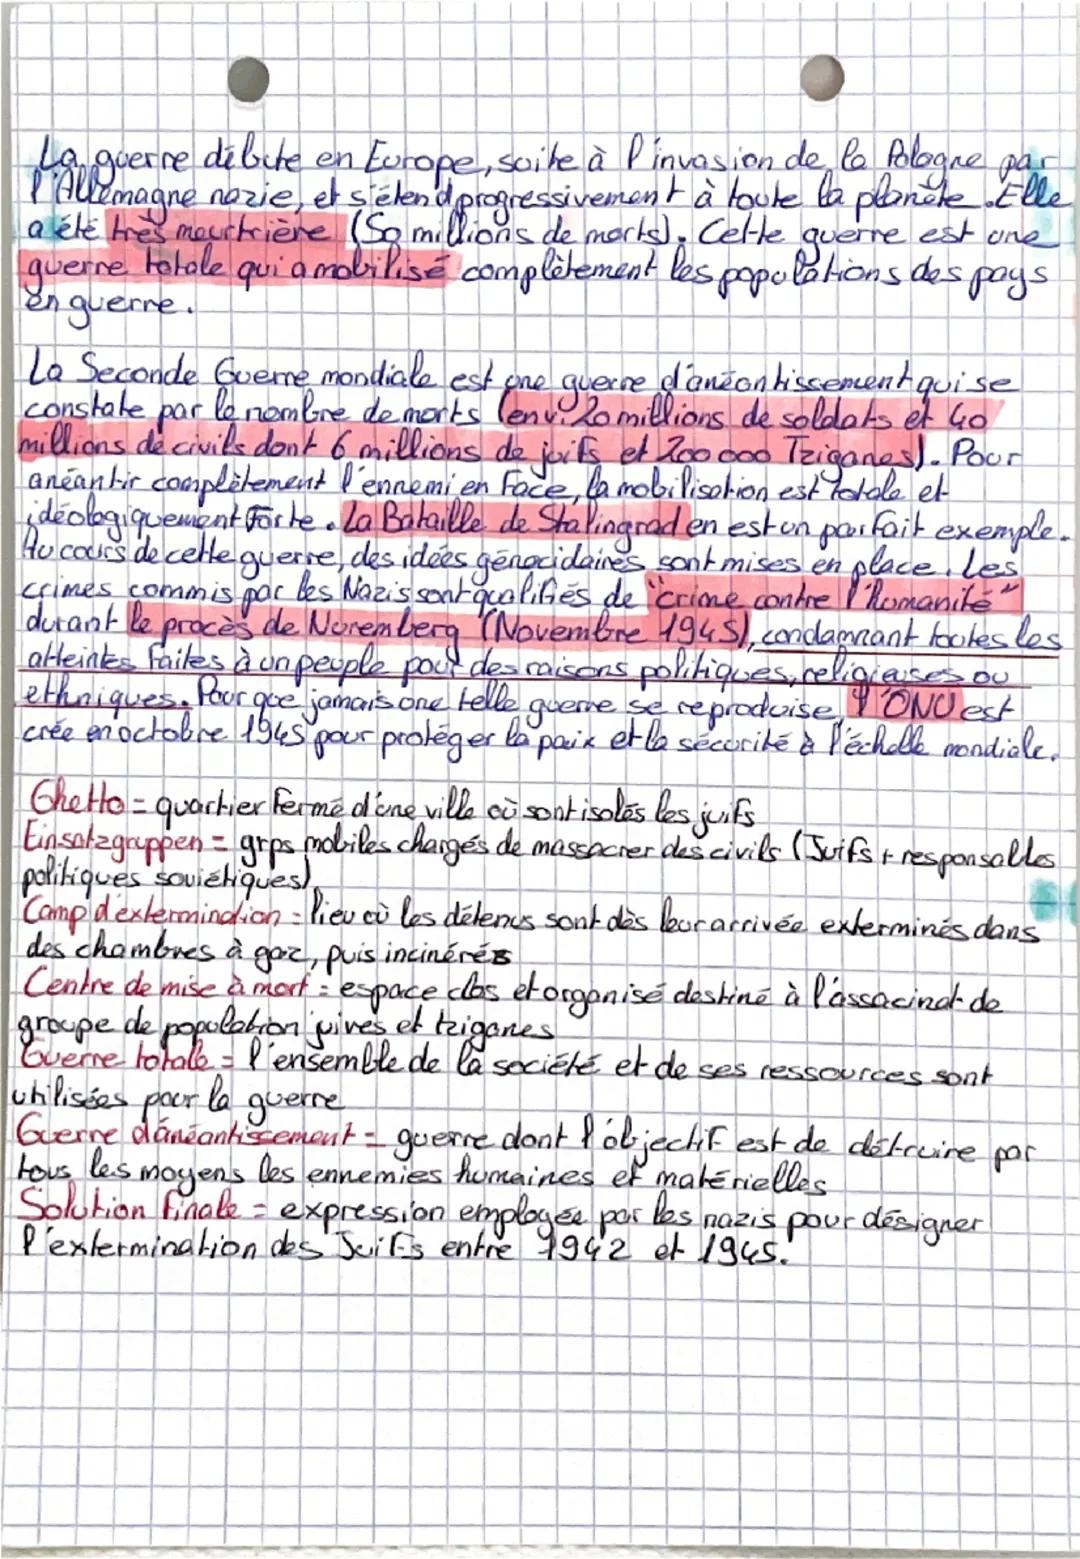 La guerre débute en Europe, suite à l'invasion de la Pologne par
l'Allemagne nazie, et s'étend progressivement à toute la planète. Elle
a été très meurtrière (50 millions de morts). Cette guerre est une
guerre totale qui a mobilisé complètement les populations des pays
en guerre.
La Seconde Guerre mondiale est une guerre d'anéantissement qui se
constate par le nombre de morts (env. 20 millions de soldats et 40
millions de civils dont 6 millions de juifs et 200 000 Tziganes). Pour
anéantir complètement l'ennemi en face, la mobilisation est totale et
idéologiquement forte. La Bataille de Stalingrad en est un parfait exemple.
Au cours de cette guerre, des idées génocidaires sont mises en place. Les
crimes commis par les Nazis sont qualifiés de "crime contre l'Humanité"
durant le procès de Nuremberg (Novembre 1945), condamnant toutes les
atteintes faites à un peuple pour des raisons politiques, religieuses ou
ethniques. Pour que jamais une telle guerre se reproduise, l'ONU est
crée en octobre 1945 pour protéger la paix et la sécurité à l'échelle mondiale.
Ghetto = quartier fermé d'une ville où sont isolés les juifs
Einsatzgruppen = grps mobiles chargés de massacrer des civils (Juifs + responsables
politiques soviétiques)
Camp d'extermination = lieu où les détenus sont dès leur arrivée exterminés dans
des chambres à gaz, puis incinérés
Centre de mise à mort = espace clos et organisé destiné à l'assacinat de
groupe de population juives et tziganes
Guerre totale = l'ensemble de la société et de ses ressources sont
utilisées pour la guerre
Guerre d'anéantissement = guerre dont l'objectif est de détruire par
tous les moyens les ennemies humaines et matérielles
Solution finale = expression employée par les nazis pour désigner
l'extermination des Juifs entre 1942 et 1945.